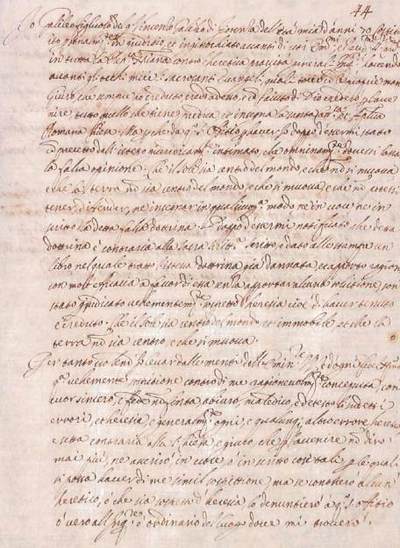 44
Io Galileo figliolo del q. Vincenzo Galileo di Fiorenza dell'età mia d'anni 70
in giuditio, et inginocchiato avanti di voi
in tutta la contro l'heretica pravità generali havendo
avanti gl'occhi miei li sacrosanti quali tocco con le proprie mani
Giuro che sempre ho creduto, credo adesso, e con l'aiuto di Dio crederò per l'avve
nire tutto quello che tiene, predica, et insegna la
Romana Chiesa. Ma perche da q.o S. Off.o per haver io, dopo d'essermi stato
con precetto dell'istesso intimato, che omninam.te dovessi lasciar
la falsa opinione, che il sole sia centro del mondo, e che non si muova
e che la terra non sia centro del mondo, e che si muova, e che non potessi
tener, difender, ne insegnar in qualsivoglia modo, ne in voce, ne in
scritto la detta falsa dottrina, e dopo d'essermi notificato che detta
dottrina è contraria alla Sacra scritto, e dato alle stampe un
libro nel quale tratto l'istessa dottrina già dannata, et apporto ragioni
con molta efficacia a favor di essa senza apportar alcuna solutione, son
stato giudicato vehementem.te sospetto d'heresia, cioè d'haver tenuto
e creduto, che il sole sia centro del mondo et immobile, et che la
terra non sia centro, e che si muova
Per tanto, volendo io levar dalla mente
vehemente suspitione contro di me ragionevolm.te conceputa, con
cuor sincero, e fede non finta abiuro, maledico, e detesto li sud.ti
errori, et heresie, e generalm.te ogni, e qualunq; altro errore heresia
e setta contraria alla S. Chiesa, e giuro che per l'avvenire non dirò
mai più, ne asserirò in voce, o in scritto cose tali per le quali
si possa haver di me simil suspitione, ma se conoscerò alcun
heretico, o che sia sospetto d'heresia, lo denuntierò a q.o S. Offitio
o vero all' o ordinario del luogo, dove mi troverò.